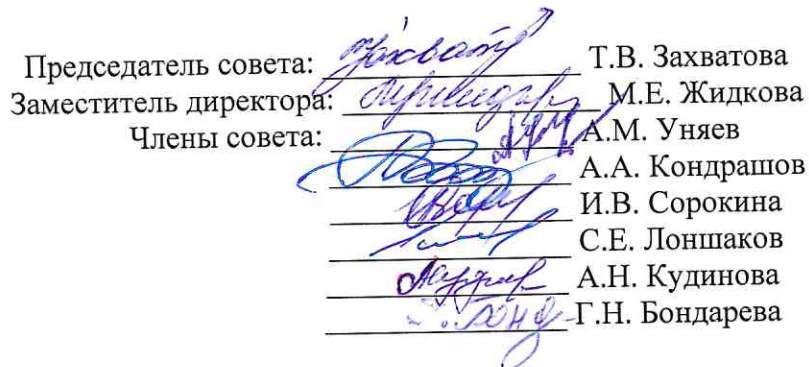 Председатель совета: Т.В. Захватова
Заместитель директора: М.Е. Жидкова
Члены совета: А.М. Уняев
А.А. Кондрашов
И.В. Сорокина
С.Е. Лоншаков
А.Н. Кудинова
Г.Н. Бондарева